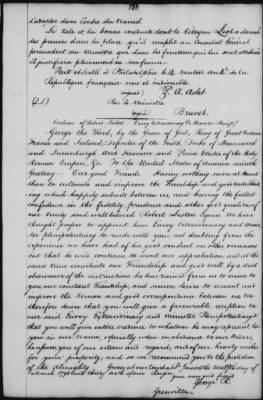 d'adopter dans l'ordre du travail.
Le zèle et la bonne conduite dont le Citoyen a donné
des preuves dans la place qu'il remplit au Consulat Général
permettent au Ministre que dans les fonctions qui lui sont
il justifiera pleinement sa confiance.
Fait et Scellé à Philadelphie le 14 de la
République française une et indivisible.
signed) P. A. Adet
(L.S.) Par le Ministre
signed)
Credence of Robert Liston Envoy Extraordinary
George the Third, by the Grace of God, King of Great Britain
France and Ireland, Defender of the Faith, Duke of Brunswick
and Lunenburgh Arch Treasurer and Prince Elector of the Holy
Roman Empire, &c. To the United States of America sendeth
Greeting. Our Good Friends. Having nothing more at Heart
than to cultivate and improve the Friendship and good understand-
ing which happily subsists between us, and having the fullest
confidence in the fidelity prudence and other good qualities of
our trusty and well-beloved Robert Liston Esquire We have
thought proper to appoint him Envoy Extraordinary and
Plenipotentiary to reside with you: not doubting from the
experience we have had of his good conduct on other occasions
but that he will continue to merit our approbation, and at the
same time conciliate our Friendship and good will by a strict
observance of the instructions he has received from us to evince to
you our constant Friendship, and sincere desire to cement and
improve the Union and good correspondence between us, we
therefore desire that you will give a favourable reception to
our said Envoy Extraordinary and Minister Plenipotentiary &
that you will give entire credence to whatever he may represent to
you in our name, especially when in obedience to our Orders,
he assures you of our esteem and regard, and of our hearty wishes
for your prosperity; and so we recommend you to the protection
of the Almighty. Given at our Court at St James's the day of
in the thirty sixth year of our reign.
George R.
Grenville